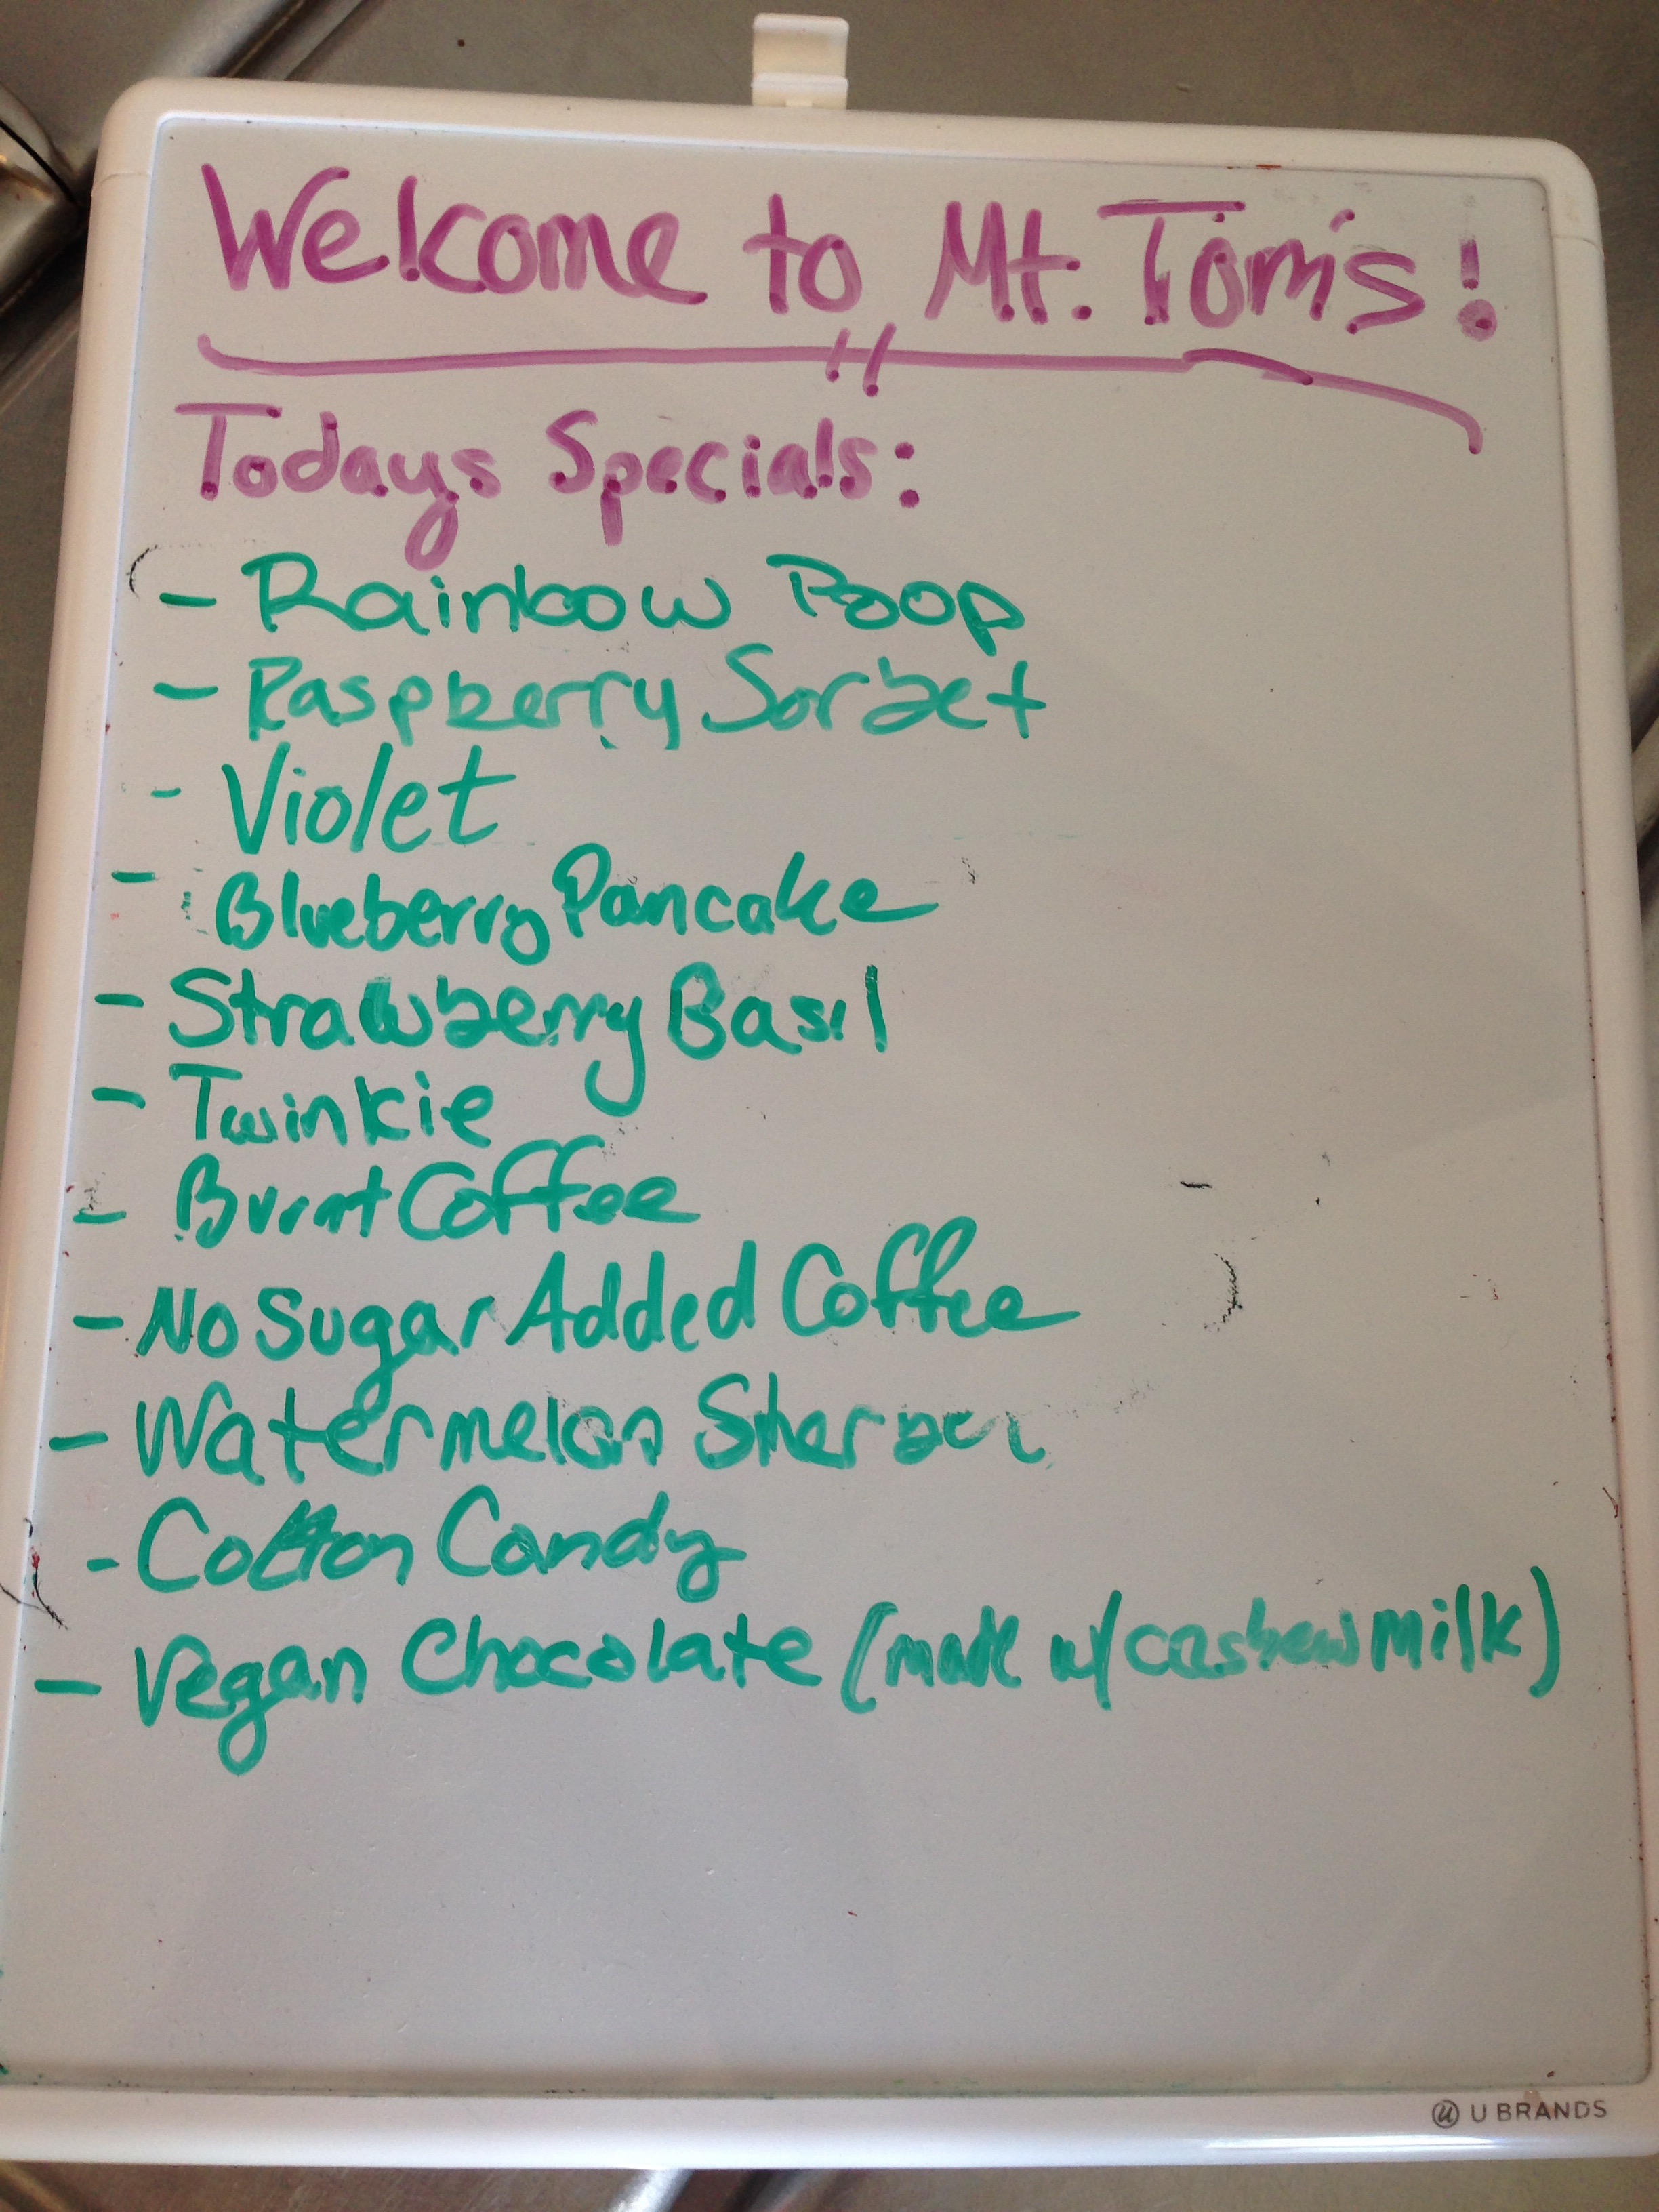 Welcome to Mt. Tom's!
Todays Specials:
- Rainbow Poop
- Raspberry Sorbet
- Violet
- Blueberry Pancake
- Strawberry Basil
- Twinkie
- Burnt Coffee
- No Sugar Added Coffee
- Watermelon Sherbet
- Cotton Candy
- Vegan Chocolate (made w/ cashew milk)
U BRANDS